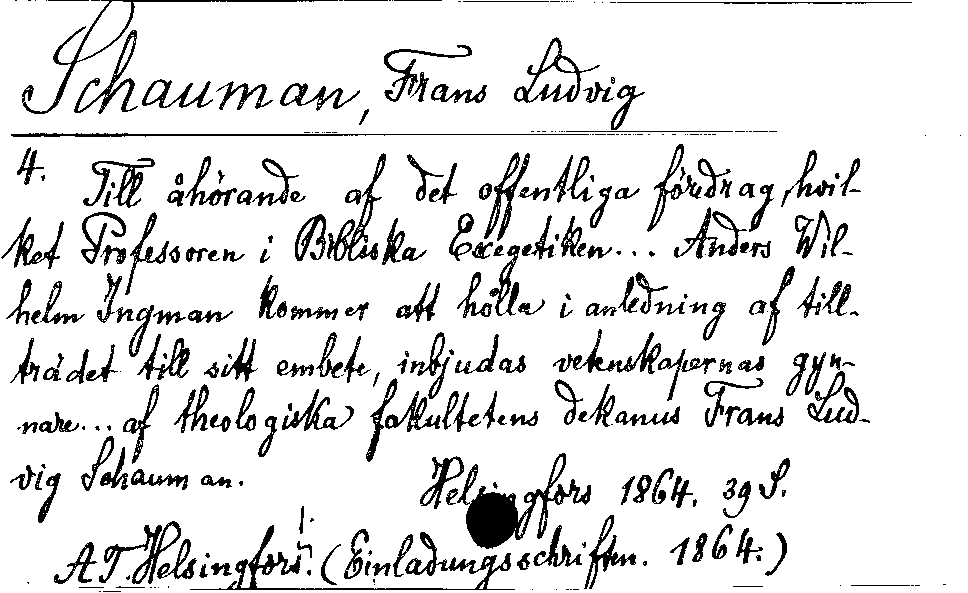 Schauman, Frans Ludvig
4. Till åhörande af det offentliga fördrag, hvil-
ket Professoren i Bibliska Exegetiken... Anders Wil-
helm Ingman kommer att hålla i anledning af till-
trädet till sitt embete, inbjudas vetenskapernas gyn-
nare... af theologiska fakultetens dekanus Frans Lud-
vig Schauman.
Helsingfors 1864. 39 S.
AT. Helsingfors. (Einladungsschriften. 1864.)